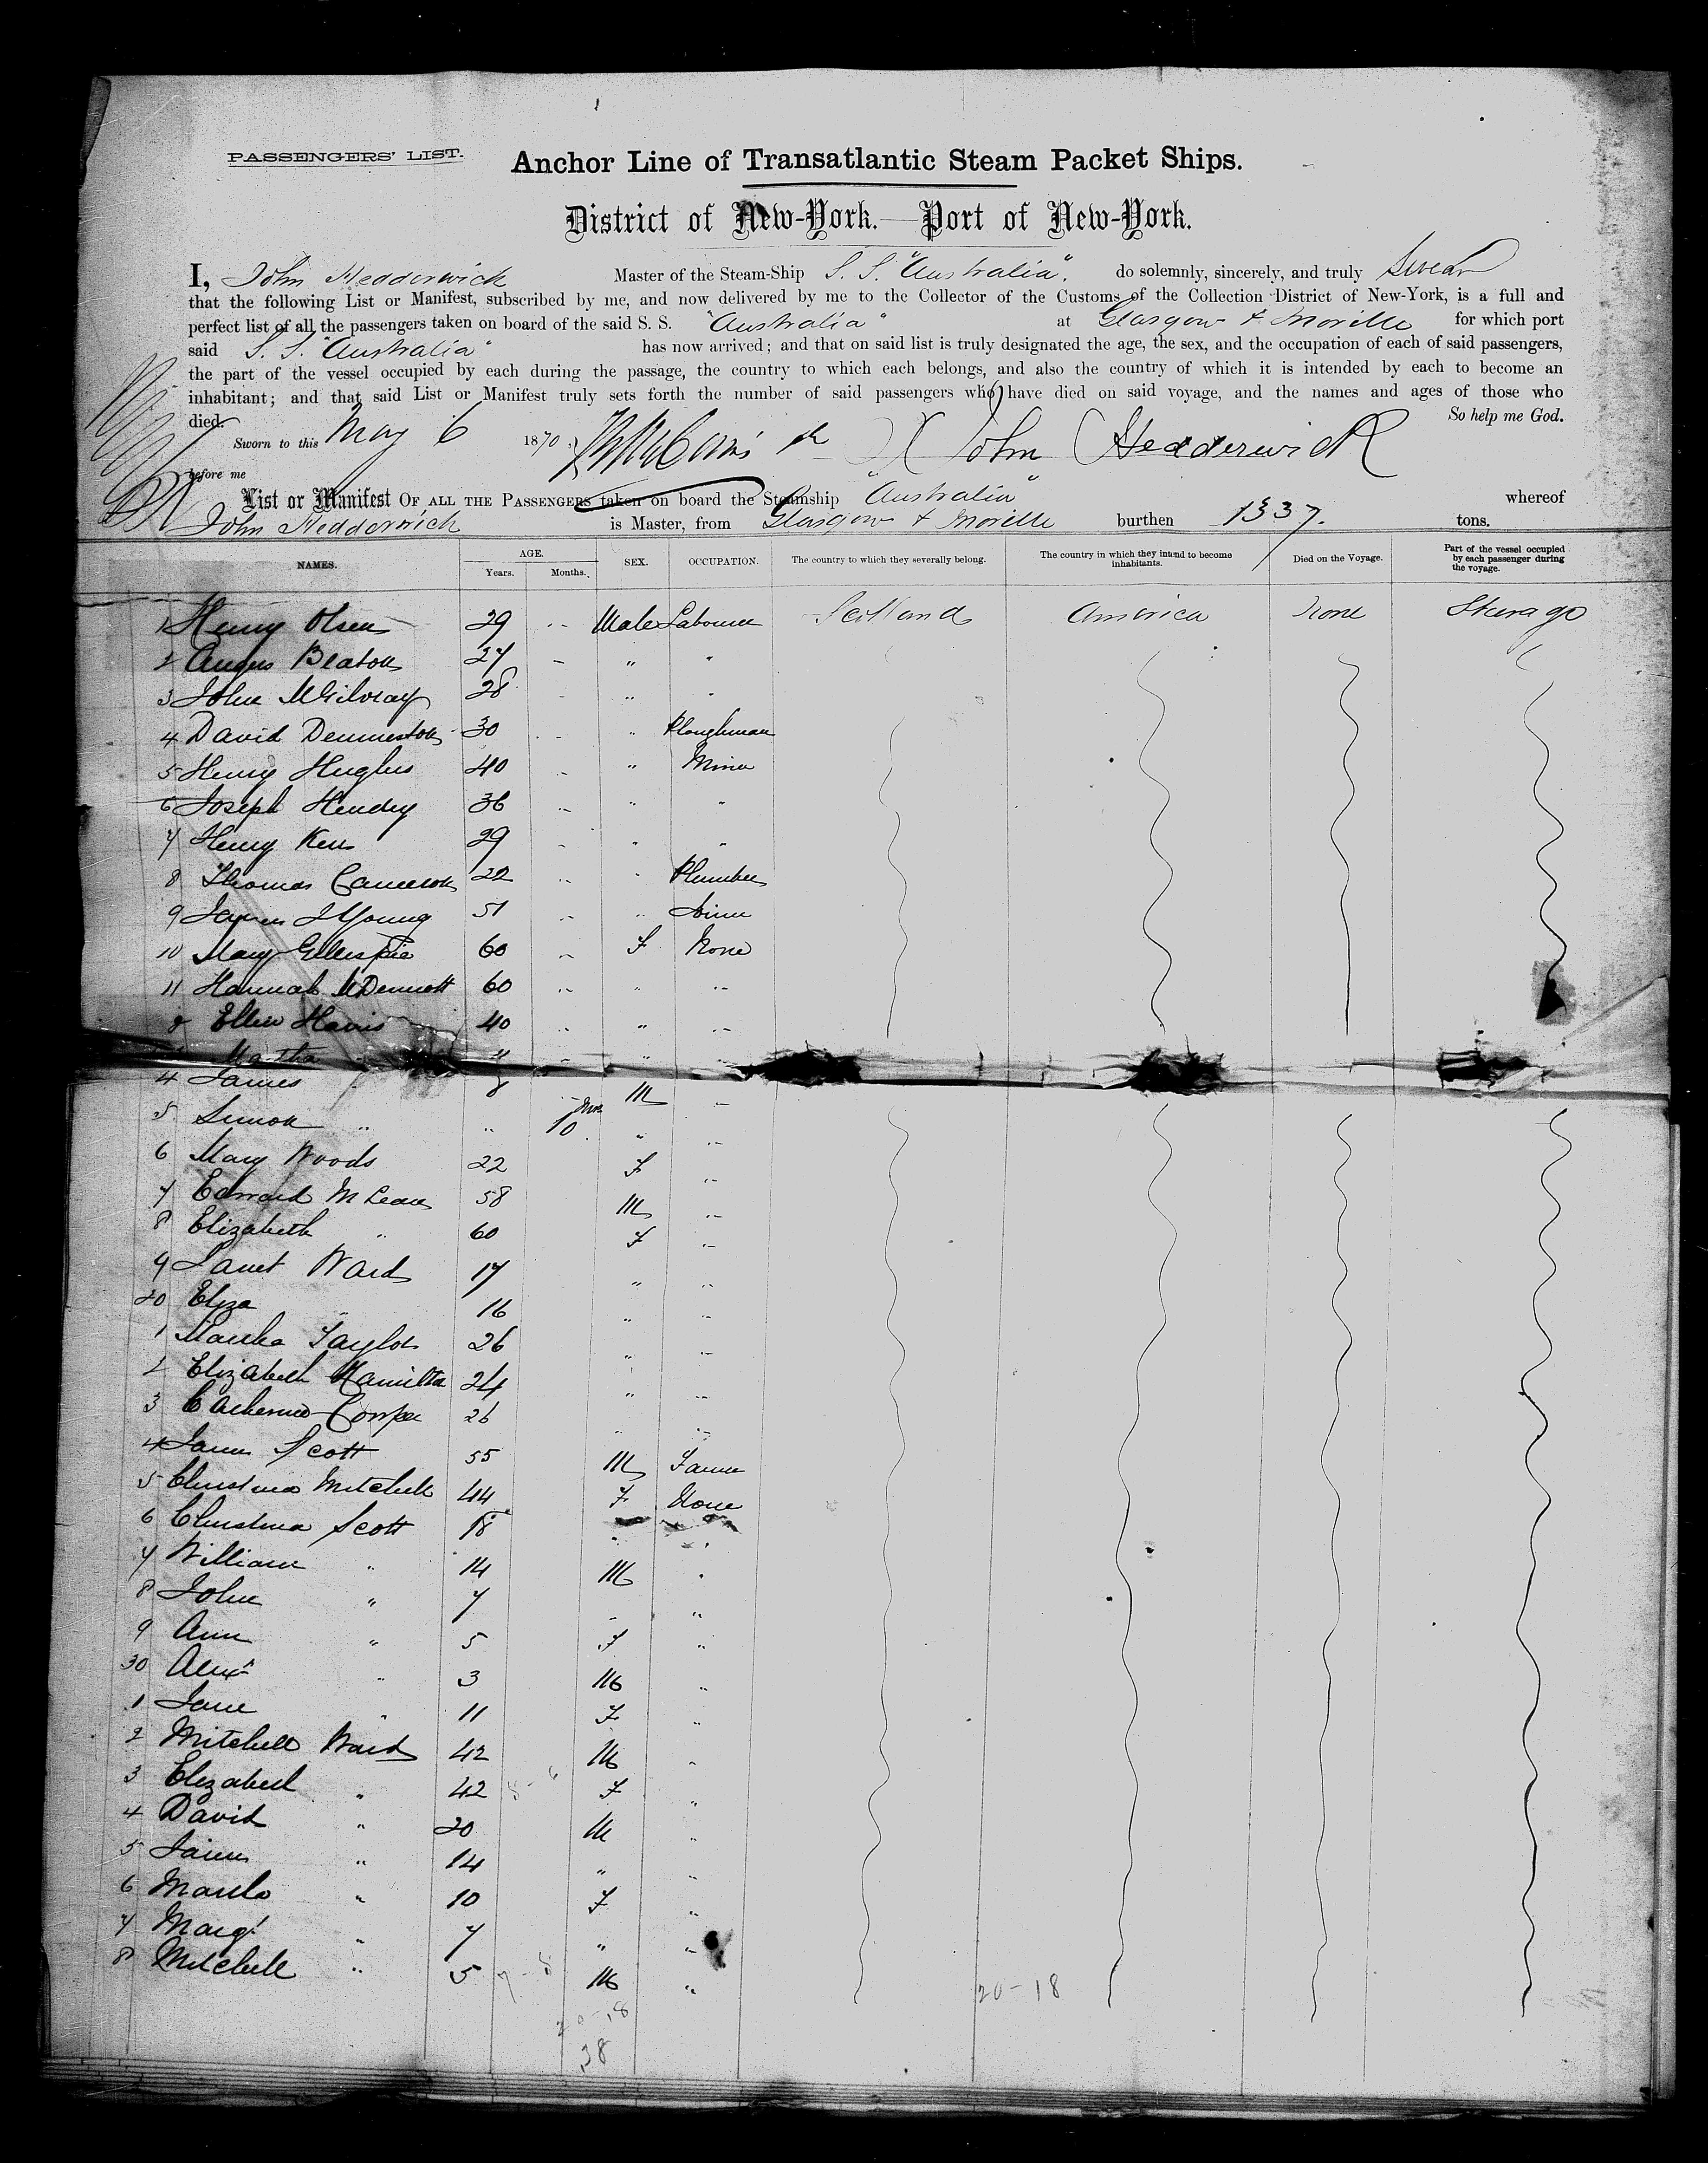 PASSENGERS' LIST.
Anchor Line of Transatlantic Steam Packet Ships.
District of New-York.—Port of New-York.
I, John Hedderwick Master of the Steam-Ship S. S. "Australia". do solemnly, sincerely, and truly Swear
that the following List or Manifest, subscribed by me, and now delivered by me to the Collector of the Customs of the Collection District of New-York, is a full and
perfect list of all the passengers taken on board of the said S. S. "Australia" at Glasgow & Moville for which port
said S. S. "Australia" has now arrived; and that on said list is truly designated the age, the sex, and the occupation of each of said passengers,
the part of the vessel occupied by each during the passage, the country to which each belongs, and also the country of which it is intended by each to become an
inhabitant; and that said List or Manifest truly sets forth the number of said passengers who have died on said voyage, and the names and ages of those who
died. So help me God.
Sworn to this May 6 1870. John Hedderwick
before me
List or Manifest OF ALL THE PASSENGERS taken on board the Steamship "Australia" whereof
John Hedderwick is Master, from Glasgow & Moville burthen 1337. tons.
NAMES. AGE. Years. Months. SEX. OCCUPATION. The country to which they severally belong. The country in which they intend to become inhabitants. Died on the Voyage. Part of the vessel occupied by each passenger during the voyage.
1 Henry Olsen 29 " Male Labourer Scotland America None Steerage
2 Angus Beaton 27 - " "
3 John McGilvray 28 - " "
4 David Dennieston 30 " " Ploughman
5 Henry Hughes 40 " " Miner
6 Joseph Hendry 36 " " "
7 Henry Kerr 29 " " "
8 Thomas Cameron 22 " " Plumber
9 James Young 51 " " Joiner
10 Mary Gillespie 60 " F None
11 Hannah McDermott 60 " " "
2 Ellen Harris 40 " " "
Martha " " "
4 James " 8 " M "
5 Simon " " 10 mos " "
6 Mary Woods 22 F "
7 Edward McLean 58 M "
8 Elizabeth " 60 F "
9 Janet Ward 17 " "
20 Eliza " 16 " "
1 Martha Taylor 26 " "
2 Elizabeth Hamilton 24 " "
3 Catherine Cowper 26 " "
4 James Scott 55 M Farmer
5 Christina Mitchell 44 F None
6 Christina Scott 18 " "
7 William " 14 M "
8 John " 7 " "
9 Ann " 5 F "
30 Alexr " 3 M "
1 Jane " 11 F "
2 Mitchell Ward 42 M "
3 Elizabeth " 42 F "
4 David " 20 M "
5 James " 14 " "
6 Martha " 10 F "
7 Margt " 7 " "
8 Mitchell " 5 M "
20-18
20-18
38